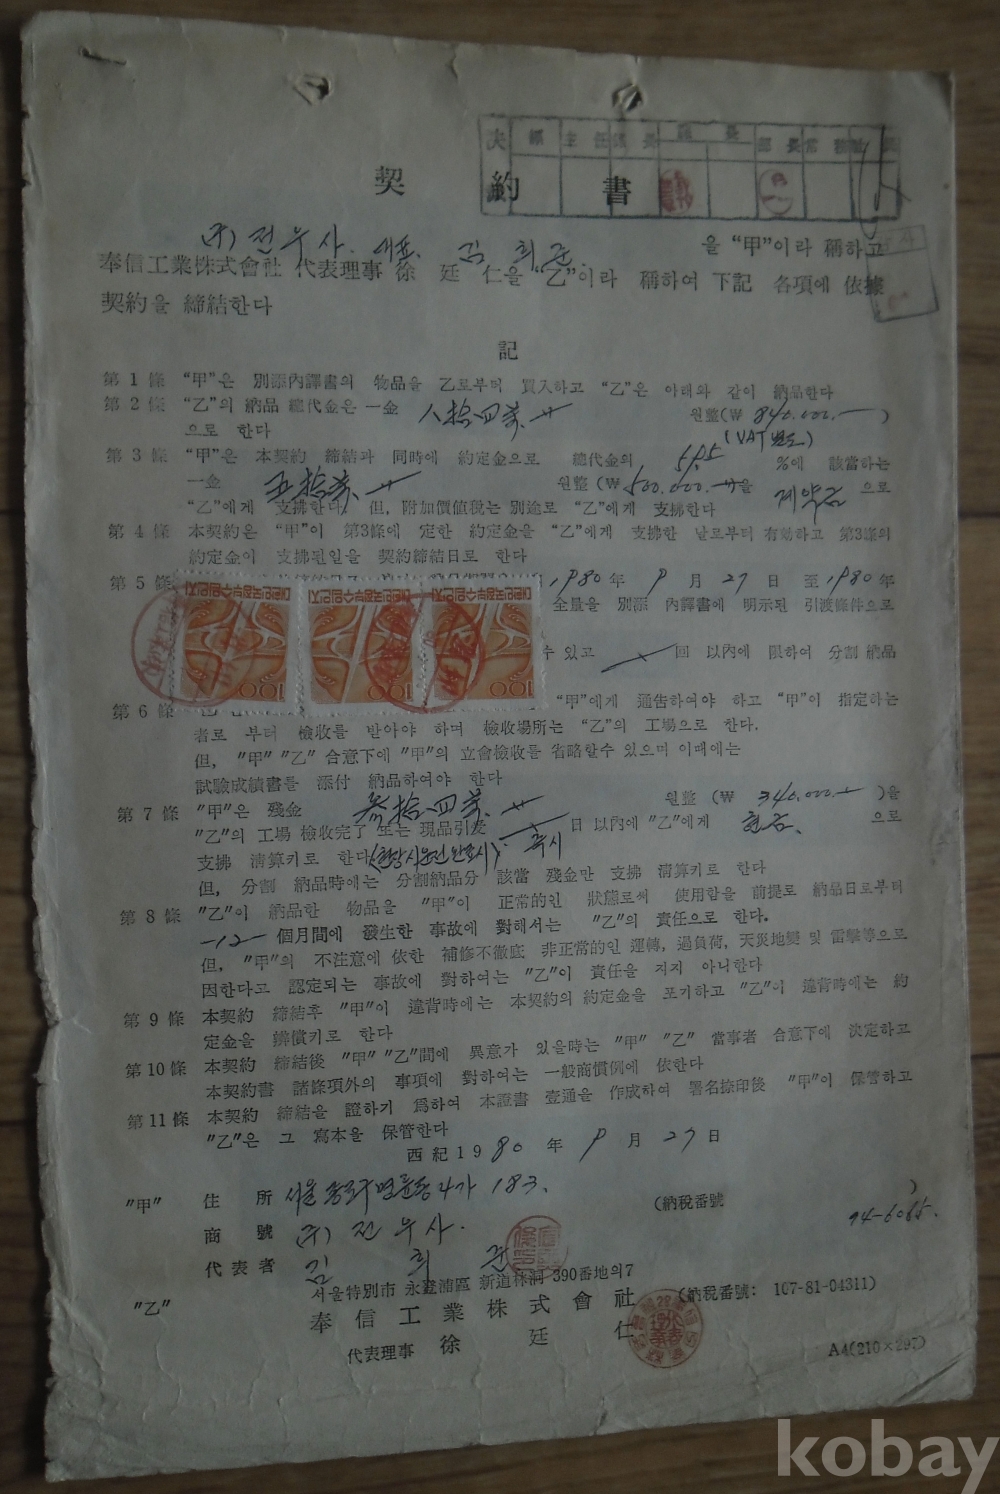 決 裁 係 主任 課長 部長 常務
契約書
(주) 전우사. 대표. 김희준. 을 “甲”이라 稱하고
奉信工業株式會社 代表理事 徐廷仁을 “乙”이라 稱하여 下記 各項에 依據
契約을 締結한다
記
第1條 “甲”은 別添內譯書의 物品을 乙로부터 買入하고 “乙”은 아래와 같이 納品한다
第2條 “乙”의 納品 總代金은 一金 八拾四萬 원整(₩ 840,000.—)
으로 한다 (VAT 별도)
第3條 “甲”은 本契約 締結과 同時에 約定金으로 總代金의 59.5 %에 該當하는
一金 五拾萬 원整(₩500,000.—)을 계약금 으로
“乙”에게 支拂한다 但, 附加價値稅는 別途로 “乙”에게 支拂한다
第4條 本契約은 “甲”이 第3條에 定한 約定金을 “乙”에게 支拂한 날로부터 有効하고 第3條의
約定金이 支拂된일을 契約締結日로 한다
第5條 1980年 9月 27日 至 1980年
대한민국정부수입인지 대한민국정부수입인지 대한민국정부수입인지
全量을 別添 內譯書에 明示된 引渡條件으로
수 있고 回 以內에 限하여 分割 納品
100 100 100
第6條 “甲”에게 通告하여야 하고 “甲”이 指定하는
者로 부터 檢收를 받아야 하며 檢收場所는 “乙”의 工場으로 한다.
但, “甲” “乙” 合意下에 “甲”의 立會檢收를 省略할수 있으며 이때에는
試驗成績書를 添付 納品하여야 한다
第7條 “甲”은 殘金 參拾四萬 원整 (₩ 340,000.—)을
“乙”의 工場 檢收完了 또는 現品引渡 日 以內에 “乙”에게 현금. 으로
支拂 淸算키로 한다 (현장시운전완료시) 즉시
但, 分割 納品時에는 分割納品分 該當 殘金만 支拂 淸算키로 한다
第8條 “乙”이 納品한 物品을 “甲”이 正常的인 狀態로써 使用함을 前提로 納品日로부터
—12— 個月間에 發生한 事故에 對해서는 “乙”의 責任으로 한다.
但, “甲”의 不注意에 依한 補修不徹底 非正常的인 運轉, 過負荷, 天災地變 및 雷擊等으로
因한다고 認定되는 事故에 對하여는 “乙”이 責任을 지지 아니한다
第9條 本契約 締結후 “甲”이 違背時에는 本契約의 約定金을 포기하고 “乙”이 違背時에는 約
定金을 辨償키로 한다
第10條 本契約 締結後 “甲” “乙”間에 異意가 있을時는 “甲” “乙” 當事者 合意下에 決定하고
本契約書 諸條項外의 事項에 對하여는 一般商慣例에 依한다
第11條 本契約 締結을 證하기 爲하여 本證書 壹通을 作成하여 署名捺印後 “甲”이 保管하고
“乙”은 그 寫本을 保管한다
西紀1980年 9月 27日
“甲” 住所 서울 종로구 명륜동4가 183. (納稅番號 )
94-6065.
商號 (주) 전우사.
代表者 김희준
서울特別市 永登浦區 新道林洞 390番地의7
“乙” 奉信工業株式會社 (納稅番號: 107-81-04311)
代表理事 徐廷仁
A4(210×297)
kobay